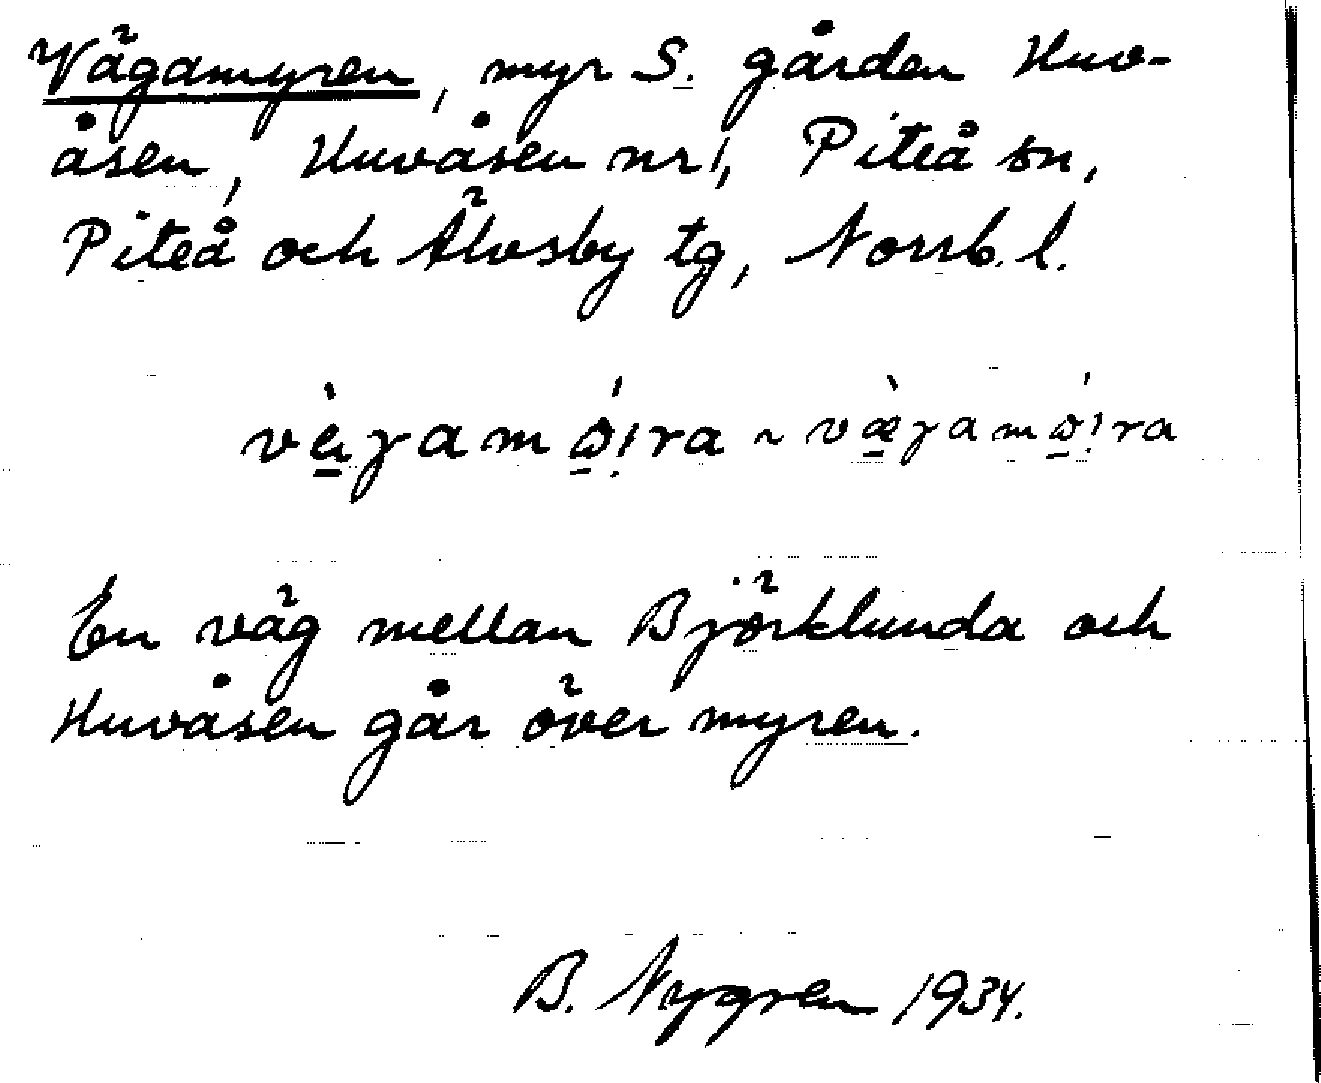 Vägamyren, myr S. gården Huv-
åsen, Huvåsen nr 1, Piteå sn,
Piteå och Älvsby tg, Norrb. l.
En väg mellan Björklunda och
Huvåsen går över myren.
B. Nygren 1934.